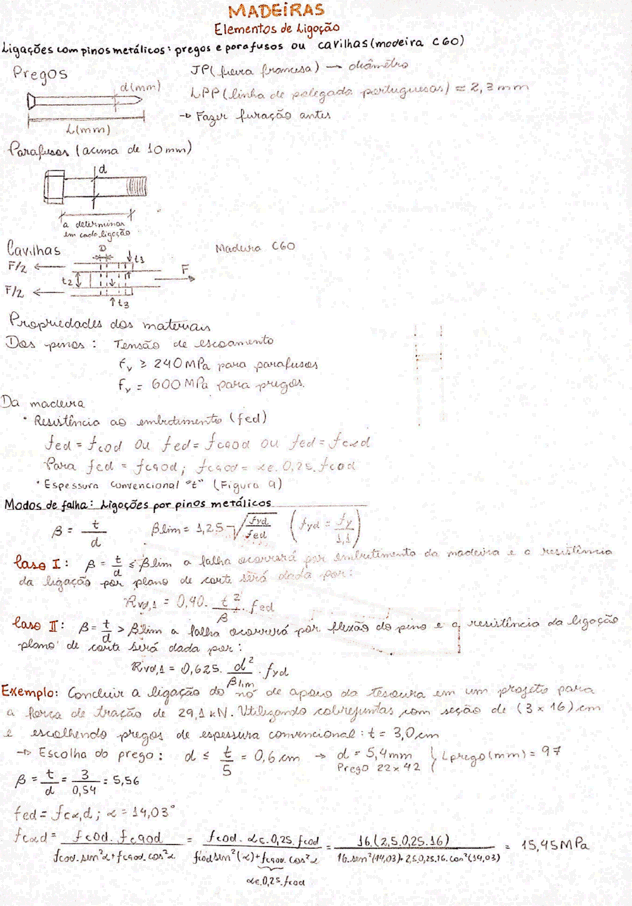 MADEIRAS
Elementos de Ligação
Ligações com pinos metálicos: pregos e parafusos ou cavilhas (madeira C60)
Pregos
JP (fieira francesa) → diâmetro
d(mm)
LPP (linha de polegada portuguesas) ≈ 2,3 mm
→ Fazer furação antes
L(mm)
Parafusos (acima de 10mm)
d
a determinar
em cada ligação
Cavilhas
D
Madeira C60
t1
F/2
F
t2
F/2
t3
Propriedades dos materiais
Dos pinos: Tensão de escoamento
fv ≥ 240 MPa para parafusos
fv = 600 MPa para pregos
Da madeira
• Resistência ao embutimento (fed)
fed = fc0d ou fed = fc90d ou fed = fcαd
Para fed = fc90d; fc90d = αe. 0,25. fc0d
• Espessura convencional "t" (Figura 9)
Modos de falha: Ligações por pinos metálicos
β = t/d βlim = 1,25 √(fyd/fed) (fyd = fy/1,1)
Caso I: β = t/d ≤ βlim a falha ocorrerá por embutimento da madeira e a resistência
da ligação por plano de corte será dada por:
Rvd,1 = 0,40. t²/β . fed
Caso II: β = t/d > βlim a falha ocorrerá por flexão do pino e a resistência da ligação
plano de corte será dada por:
Rvd,1 = 0,625. d²/βlim . fyd
Exemplo: Concluir a ligação do nó de apoio da tesoura em um projeto para
a força de tração de 29,1 kN. Utilizando cobrejuntas com seção de (3 x 16) cm
e escolhendo pregos de espessura convencional: t = 3,0 cm
→ Escolha do prego: d ≤ t/5 = 0,6 cm → d = 5,4mm { Lprego(mm) = 97
Prego 22 x 42
β = t/d = 3/0,54 = 5,56
fed = fcα,d; α = 14,03°
fcαd = fc0d. fc90d / fc0d. sen²α + fc90d. cos²α = fc0d. αe. 0,25. fc0d / fc0d sen²(α) + fc90d. cos²α = 16.(2,5.0,25.16) / 16. sen²(14,03) + 2,5.0,25.16. cos²(14,03) = 15,45 MPa
αe. 0,25. fc0d